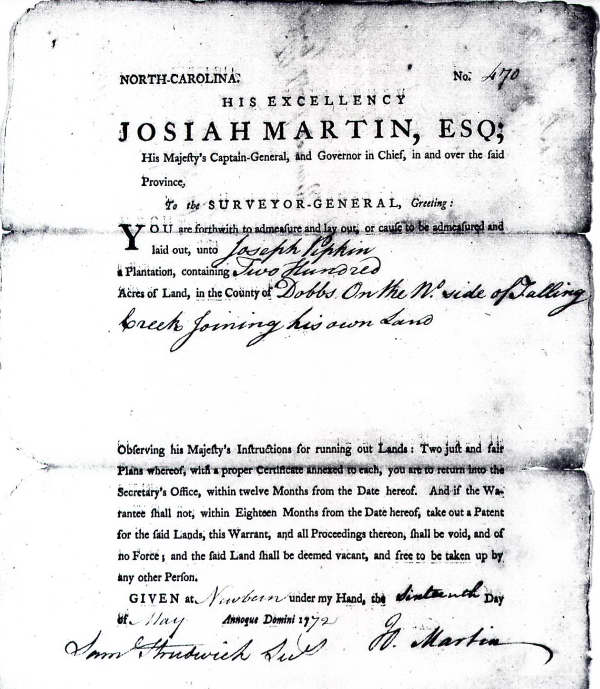 NORTH-CAROLINA. No. 470
HIS EXCELLENCY
JOSIAH MARTIN, ESQ;
His Majeſty's Captain-General, and Governor in Chief, in and over the ſaid
Province,
To the SURVEYOR-GENERAL, Greeting:
YOU are forthwith to admeaſure and lay out, or cauſe to be admeaſured and
laid out, unto Joseph Pipkin
a Plantation, containing Two Hundred
Acres of Land, in the County of Dobbs. On the No. side of Falling
Creek Joining his own Land
Obſerving his Majeſty's Inſtructions for running out Lands: Two juſt and fair
Plans whereof, with a proper Certificate annexed to each, you are to return into the
Secretary's Office, within twelve Months from the Date hereof. And if the Wa-
rantee ſhall not, within Eighteen Months from the Date hereof, take out a Patent
for the ſaid Lands, this Warrant, and all Proceedings thereon, ſhall be void, and of
no Force; and the ſaid Land ſhall be deemed vacant, and free to be taken up by
any other Perſon.
GIVEN at Newbern under my Hand, the sixteenth Day
of May Annoque Domini 1772
Saml Strudwick Sec Jo. Martin